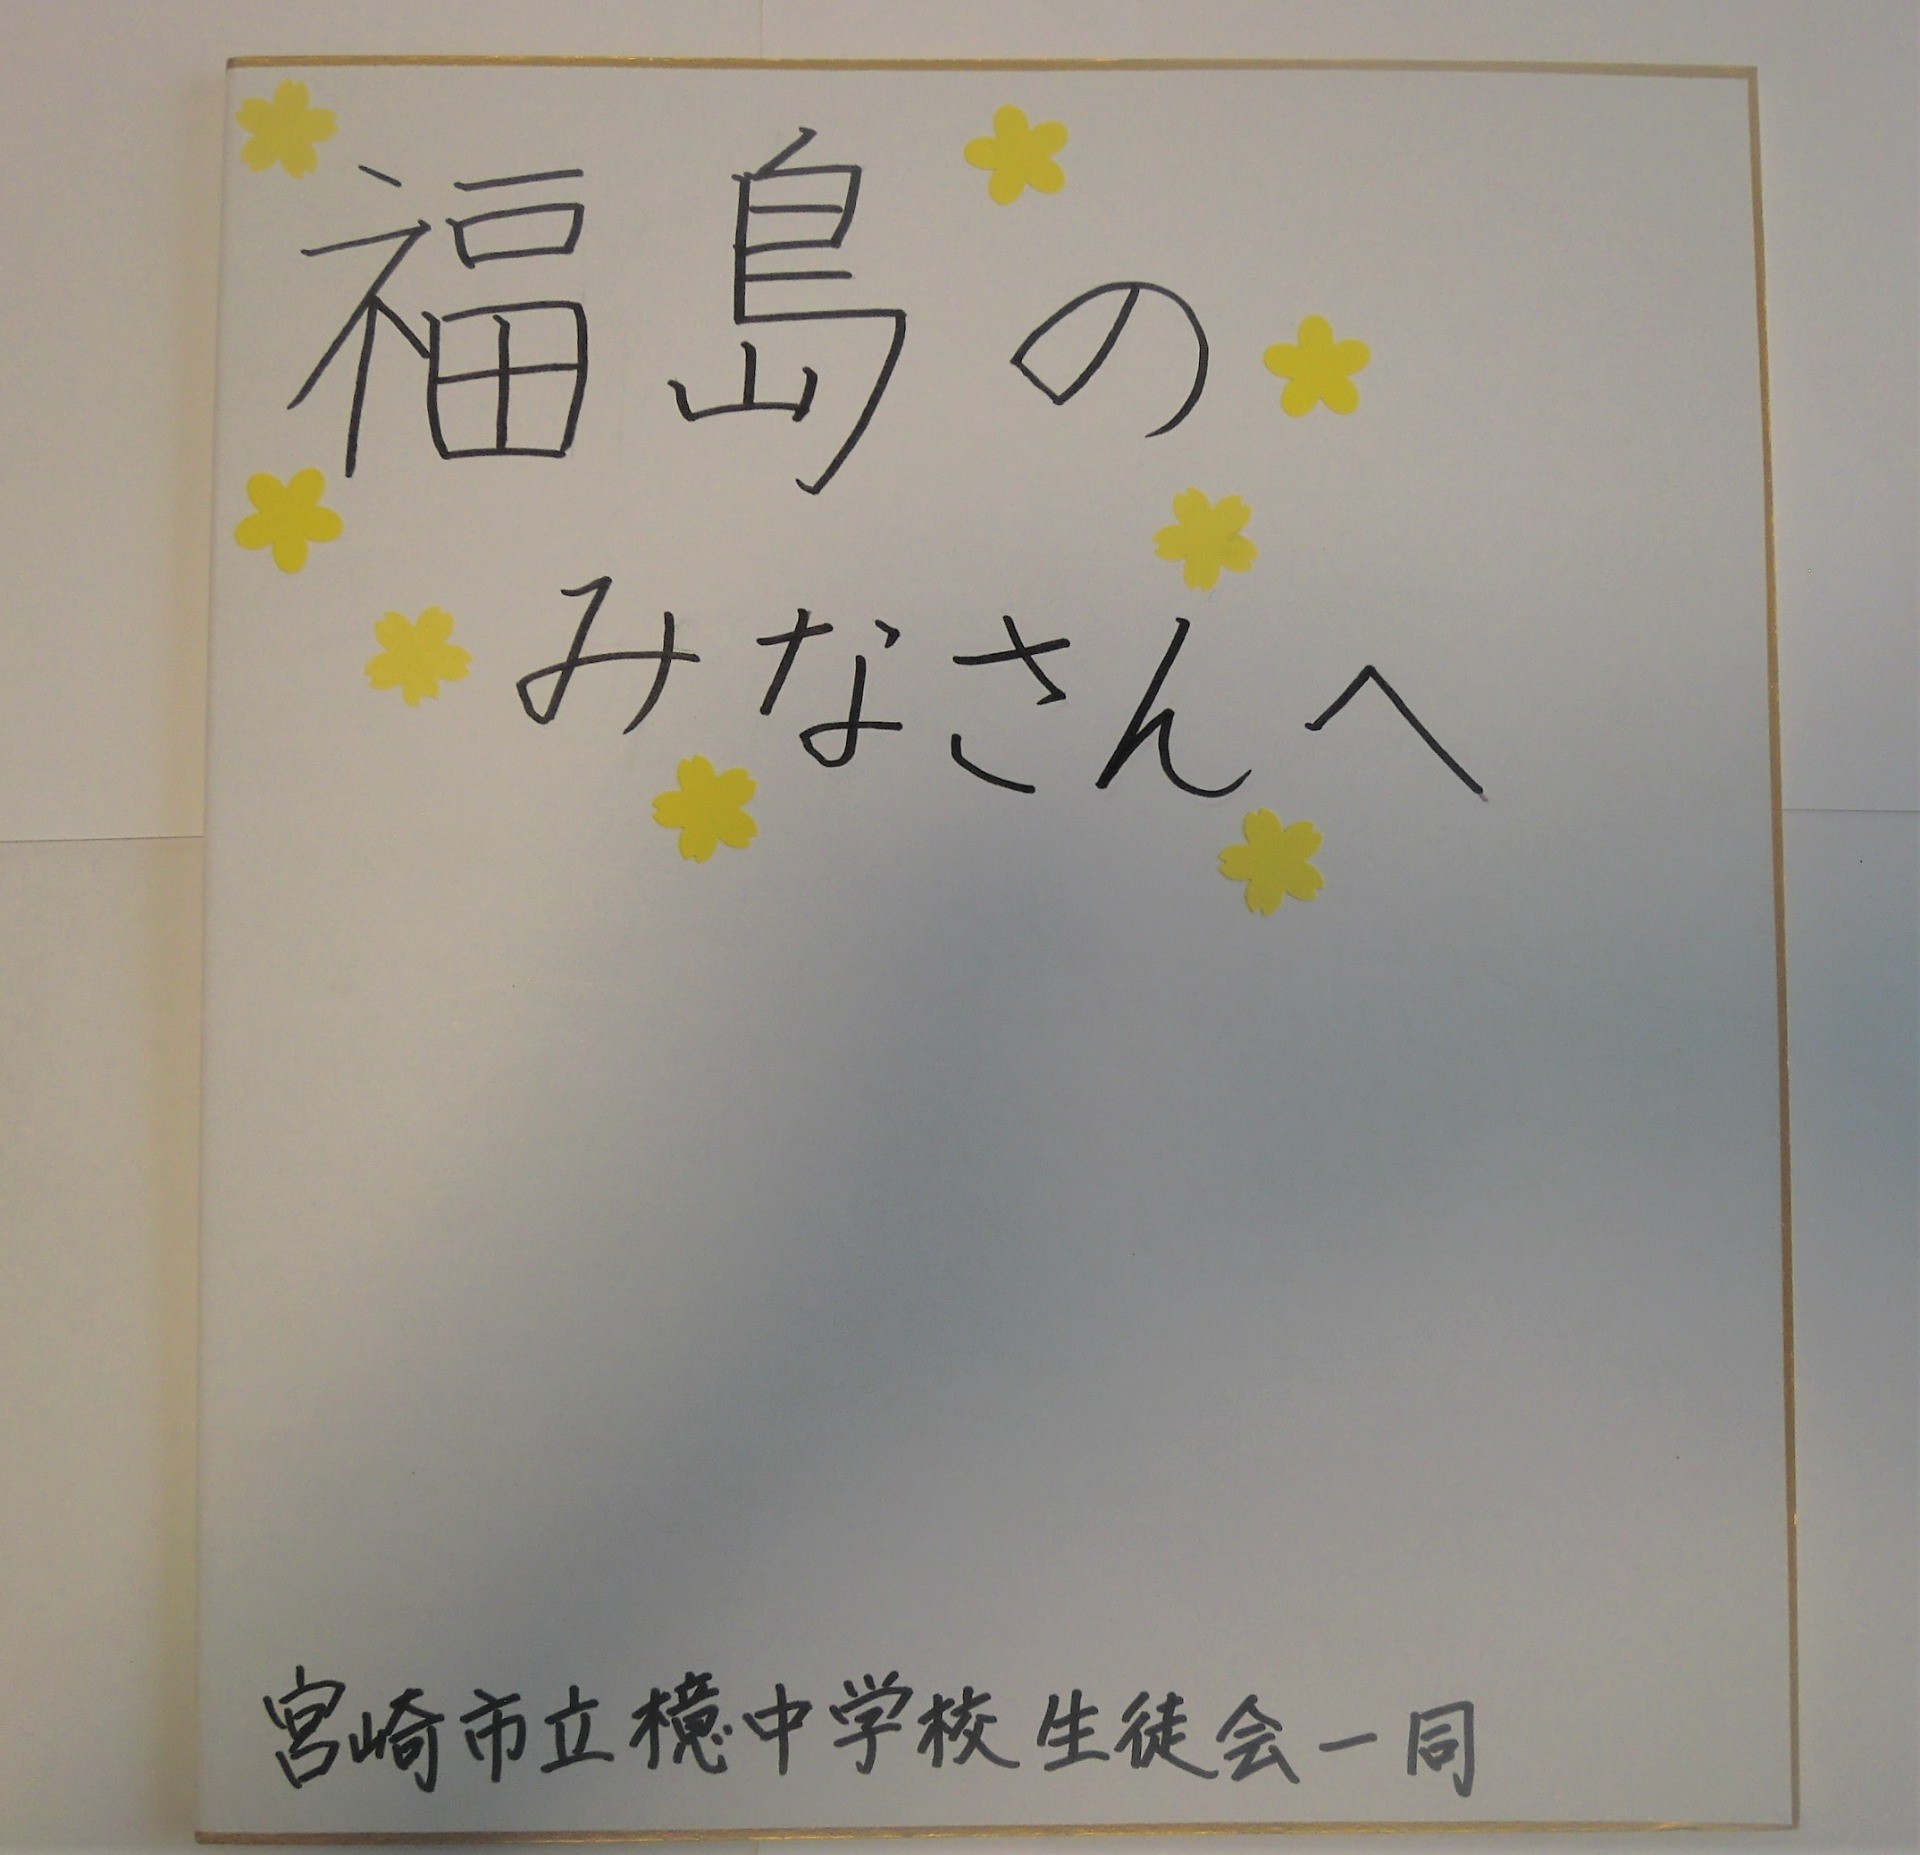 福島の
みなさんへ
宮崎市立檍中学校生徒会一同